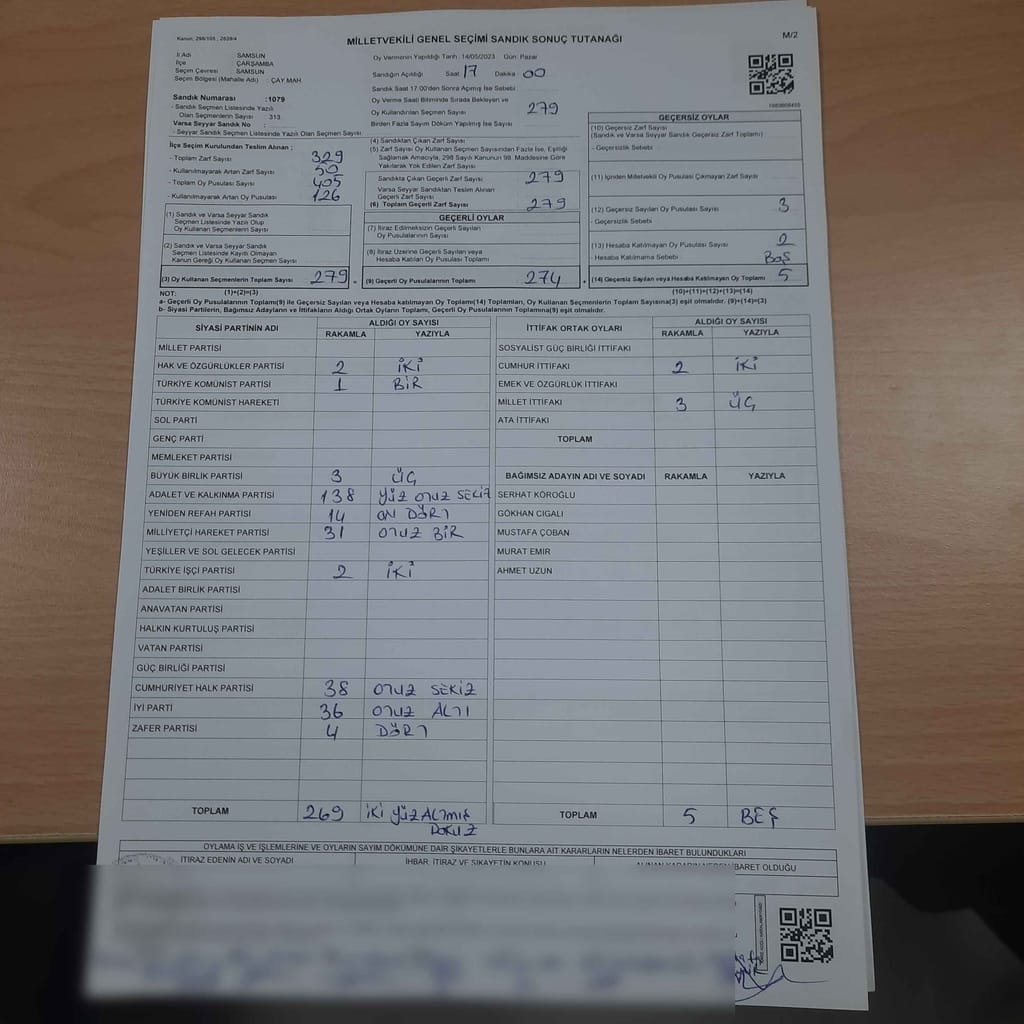 Kanun; 298/105 , 2839/4
MİLLETVEKİLİ GENEL SEÇİMİ SANDIK SONUÇ TUTANAĞI
M/2
İl Adı : SAMSUN
İlçe : ÇARŞAMBA
Seçim Çevresi : SAMSUN
Seçim Bölgesi (Mahalle Adı) : ÇAY MAH.
Sandık Numarası :1079
- Sandık Seçmen Listesinde Yazılı
Olan Seçmenlerin Sayısı 313
Varsa Seyyar Sandık No :
- Seyyar Sandık Seçmen Listesinde Yazılı Olan Seçmen Sayısı
İlçe Seçim Kurulundan Teslim Alınan ;
- Toplam Zarf Sayısı 329
- Kullanılmayarak Artan Zarf Sayısı 50
- Toplam Oy Pusulası Sayısı 405
- Kullanılmayarak Artan Oy Pusulası 126
(1) Sandık ve Varsa Seyyar Sandık
Seçmen Listesinde Yazılı Olup
Oy Kullanan Seçmen Sayısı
(2) Sandık ve Varsa Seyyar Sandık
Seçmen Listesinde Kayıtlı Olmayan
Kanun Gereği Oy Kullanan Seçmen Sayısı
(3) Oy Kullanan Seçmenlerin Toplam Sayısı 279
(1)+(2)=(3)
Oy Vermenin Yapıldığı Tarih : 14/05/2023 Gün: Pazar
Sandığın Açıldığı Saat 17 Dakika 00
Sandık Saat 17:00'den Sonra Açılmış İse Sebebi :
Oy Verme Saati Bitiminde Sırada Bekleyen ve
Oy Kullandırılan Seçmen Sayısı 279
Birden Fazla Sayım Döküm Yapılmış İse Sayısı
(4) Sandıktan Çıkan Zarf Sayısı
(5) Zarf Sayısı Oy Kullanan Seçmen Sayısından Fazla İse, Eşitliği
Sağlamak Amacıyla, 298 Sayılı Kanunun 98. Maddesine Göre
Yakılarak Yok Edilen Zarf Sayısı
Sandıkta Çıkan Geçerli Zarf Sayısı 279
Varsa Seyyar Sandıktan Teslim Alınan
Geçerli Zarf Sayısı
(6) Toplam Geçerli Zarf Sayısı 279
GEÇERLİ OYLAR
(7) İtiraz Edilmeksizin Geçerli Sayılan
Oy Pusulalarının Sayısı
(8) İtiraz Üzerine Geçerli Sayılan veya
Hesaba Katılan Oy Pusulası Toplamı
(9) Geçerli Oy Pusulalarının Toplamı 274
GEÇERSİZ OYLAR
(10) Geçersiz Zarf Sayısı
(Sandık ve Varsa Seyyar Sandık Geçersiz Zarf Toplamı)
- Geçersizlik Sebebi
(11) İçinden Milletvekili Oy Pusulası Çıkmayan Zarf Sayısı
(12) Geçersiz Sayılan Oy Pusulası Sayısı 3
- Geçersizlik Sebebi
(13) Hesaba Katılmayan Oy Pusulası Sayısı 2
- Hesaba Katılmama Sebebi BOŞ
(14) Geçersiz Sayılan veya Hesaba Katılmayan Oy Toplamı 5
(10)+(11)+(12)+(13)=(14)
NOT:
a- Geçerli Oy Pusulalarının Toplamı(9) ile Geçersiz Sayılan veya Hesaba katılmayan Oy Toplam(14) Toplamları, Oy Kullanan Seçmenlerin Toplam Sayısına(3) eşit olmalıdır. (9)+(14)=(3)
b- Siyasi Partilerin, Bağımsız Adayların ve İttifakların Aldığı Ortak Oyların Toplamı, Geçerli Oy Pusulalarının Toplamına(9) eşit olmalıdır.
SİYASİ PARTİNİN ADI ALDIĞI OY SAYISI
RAKAMLA YAZIYLA
MİLLET PARTİSİ
HAK VE ÖZGÜRLÜKLER PARTİSİ 2 İKİ
TÜRKİYE KOMÜNİST PARTİSİ 1 BİR
TÜRKİYE KOMÜNİST HAREKETİ
SOL PARTİ
GENÇ PARTİ
MEMLEKET PARTİSİ
BÜYÜK BİRLİK PARTİSİ 3 ÜÇ
ADALET VE KALKINMA PARTİSİ 138 YÜZ OTUZ SEKİZ
YENİDEN REFAH PARTİSİ 14 ON DÖRT
MİLLİYETÇİ HAREKET PARTİSİ 31 OTUZ BİR
YEŞİLLER VE SOL GELECEK PARTİSİ
TÜRKİYE İŞÇİ PARTİSİ 2 İKİ
ADALET BİRLİK PARTİSİ
ANAVATAN PARTİSİ
HALKIN KURTULUŞ PARTİSİ
VATAN PARTİSİ
GÜÇ BİRLİĞİ PARTİSİ
CUMHURİYET HALK PARTİSİ 38 OTUZ SEKİZ
İYİ PARTİ 36 OTUZ ALTI
ZAFER PARTİSİ 4 DÖRT
TOPLAM 269 İKİ YÜZ ALTMIŞ
DOKUZ
İTTİFAK ORTAK OYLARI ALDIĞI OY SAYISI
RAKAMLA YAZIYLA
SOSYALİST GÜÇ BİRLİĞİ İTTİFAKI
CUMHUR İTTİFAKI 2 İKİ
EMEK VE ÖZGÜRLÜK İTTİFAKI
MİLLET İTTİFAKI 3 ÜÇ
ATA İTTİFAKI
TOPLAM
BAĞIMSIZ ADAYIN ADI VE SOYADI RAKAMLA YAZIYLA
SERHAT KÖROĞLU
GÖKHAN CIGALI
MUSTAFA ÇOBAN
MURAT EMİR
AHMET UZUN
TOPLAM 5 BEŞ
OYLAMA İŞ VE İŞLEMLERİNE VE OYLARIN SAYIM DÖKÜMÜNE DAİR ŞİKAYETLERLE BUNLARA AİT KARARLARIN NELERDEN İBARET BULUNDUKLARI
İTİRAZ EDENİN ADI VE SOYADI İHBAR, İTİRAZ VE ŞİKAYETİN KONUSU ALINAN KARARIN NEDEN İBARET OLDUĞU